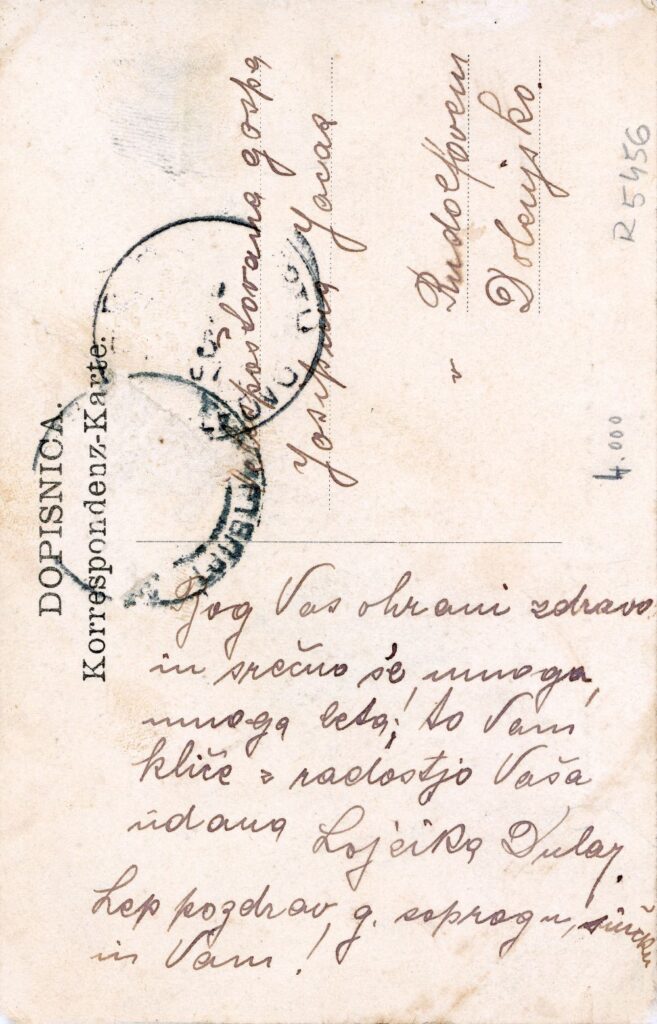 DOPISNICA.
Korrespondenz-Karte.
LJUBLJ
Velepoštovana gospa
Josipina
v Rudolfovem
Dolenjsko.
R 5456
4.000
Bog Vas ohrani zdravo
in srečno še mnoga,
mnoga leta! to Vam
kliče z radostjo Vaša
udana Lojzika Dular.
Lep pozdrav, g. soprogu, sinčku
in Vam!